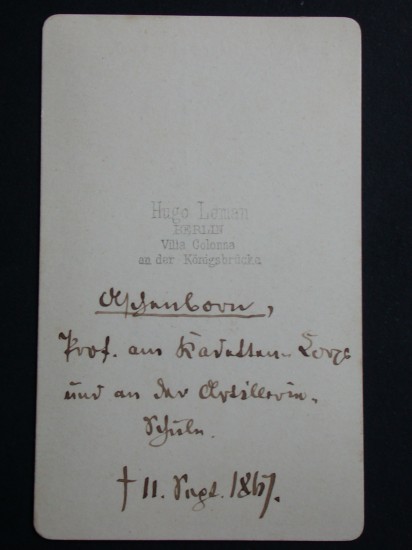 Hugo Leman
BERLIN
Villa Colonna
an der Königsbrücke
Aschenborn,
Prof. am Kadetten-Corps
und an der Artillerie-
Schule.
† 11. Sept. 1867.